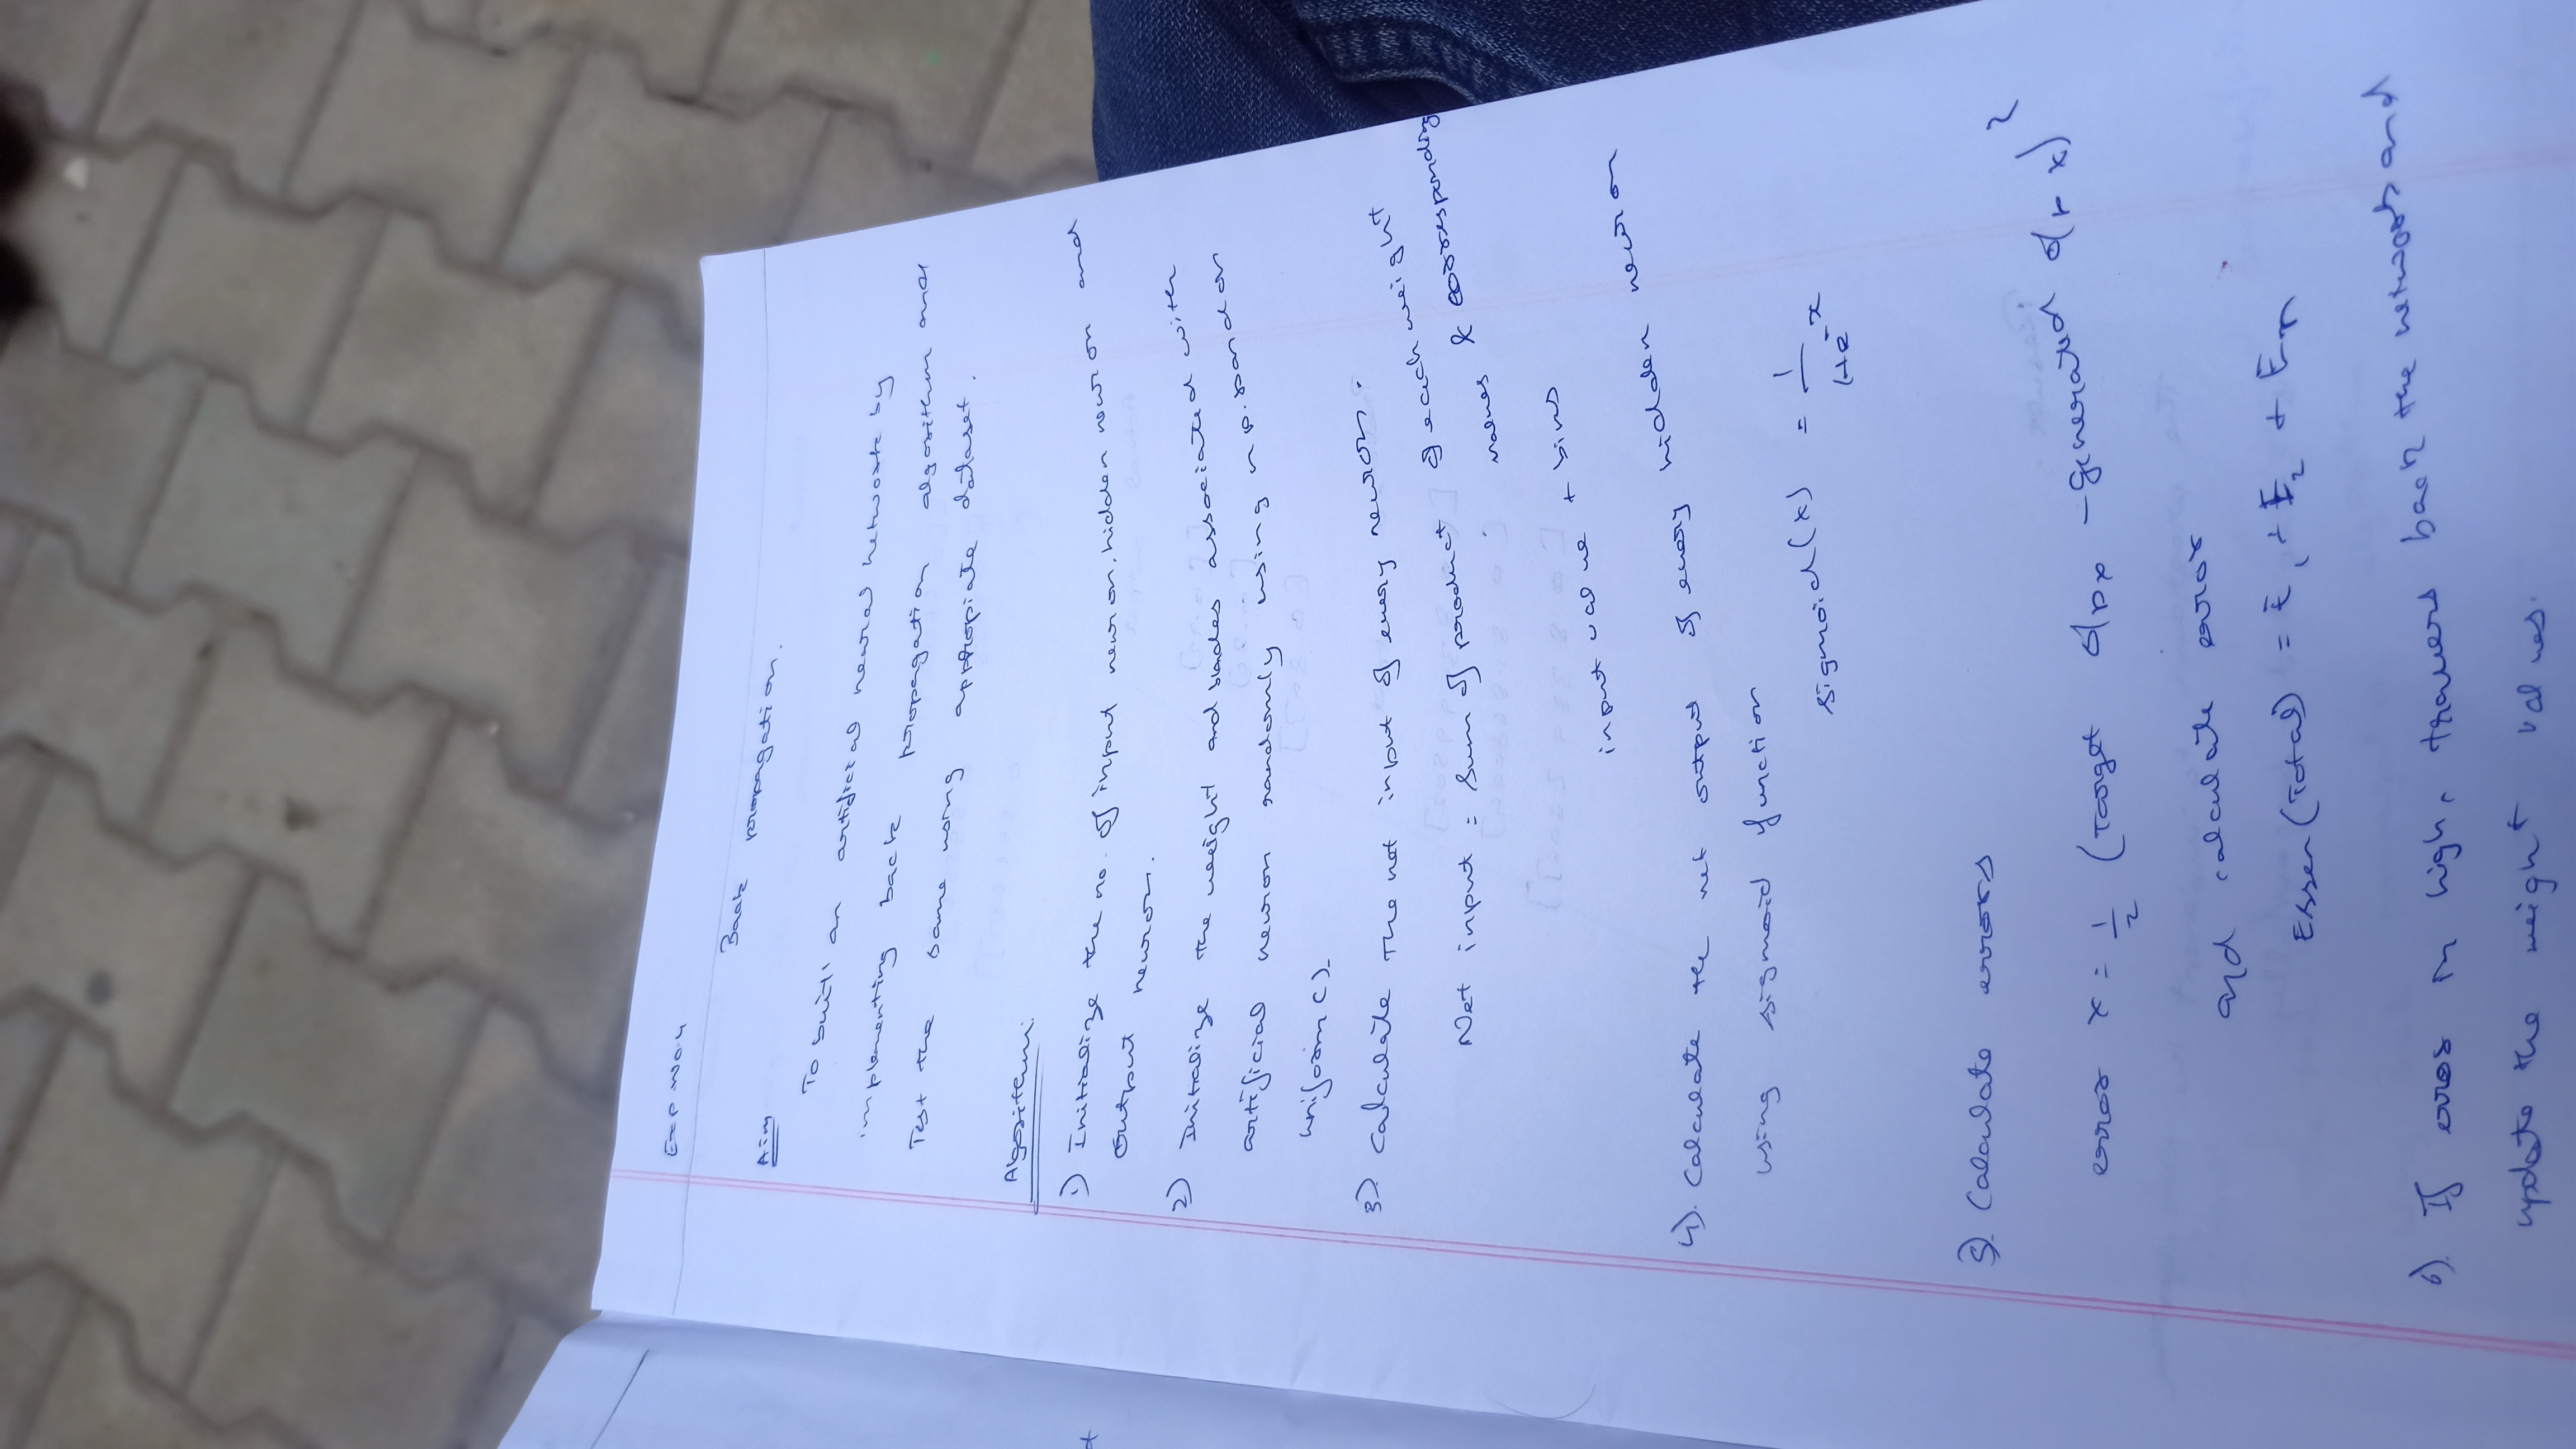 Exp No-4
Back propagation.
Aim
To built an artifical neural network by
implementing back propagation algorithm and
Test the same using appropiate dataset.
Algorithm:
1) Initialize the no. of input neuron, hidden neuron and
output neuron.
2) Initialize the weight and biades associated with
artificial neuron randomly using np.random
uniform().
3) Calculate the net input of every neuron.
Net input = Sum of product of each weight
values & corresponding
input value + bias
4). Calculate the net output of every hidden neuron
using sigmoid function
sigmoid(x) = 1/1+e^-x
5). Calculate errors
error x = 1/2 (Target of px - generated of x)^2
and calculate error
(Total) = E1 + E2 + En
6). If error in high, travers back the network and
update the weight values.